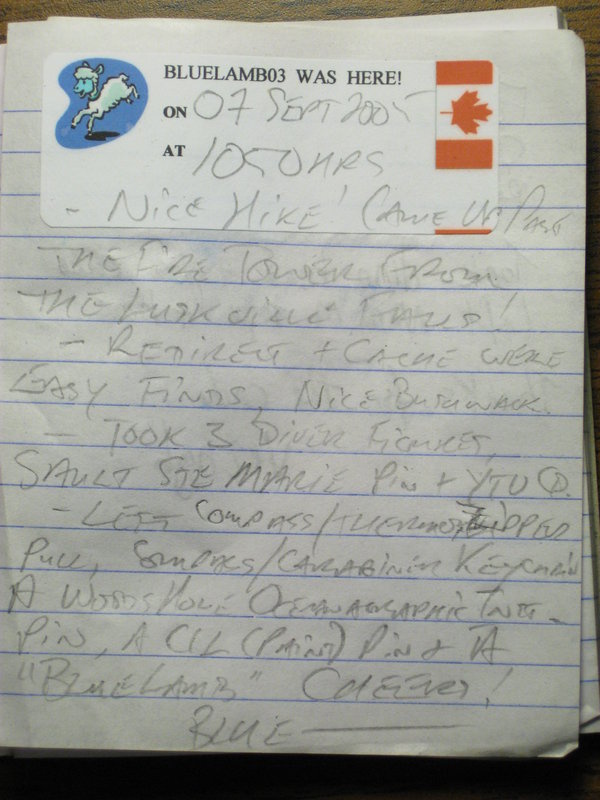 BLUELAMB03 WAS HERE!
ON 07 SEPT 2005
AT 1050HRS
- NICE HIKE! CAME UP PAST
THE FIRE TOWER FROM
THE LUSKVILLE FALLS!
- REDIRECT + CACHE WERE
EASY FINDS, NICE BUSHWACK.
- TOOK 3 DIVER FIGURES,
SAULT STE MARIE PIN +
- LEFT COMPASS/THERMO ZIPPER
PULL, COMPASS/CARABINER KEYCHAIN
A WOODS HOLE OCEANAGRAPHIC INST.
PIN, A CIL (PAINT) PIN + A
"BLUELAMB" CHEERS!
BLUE